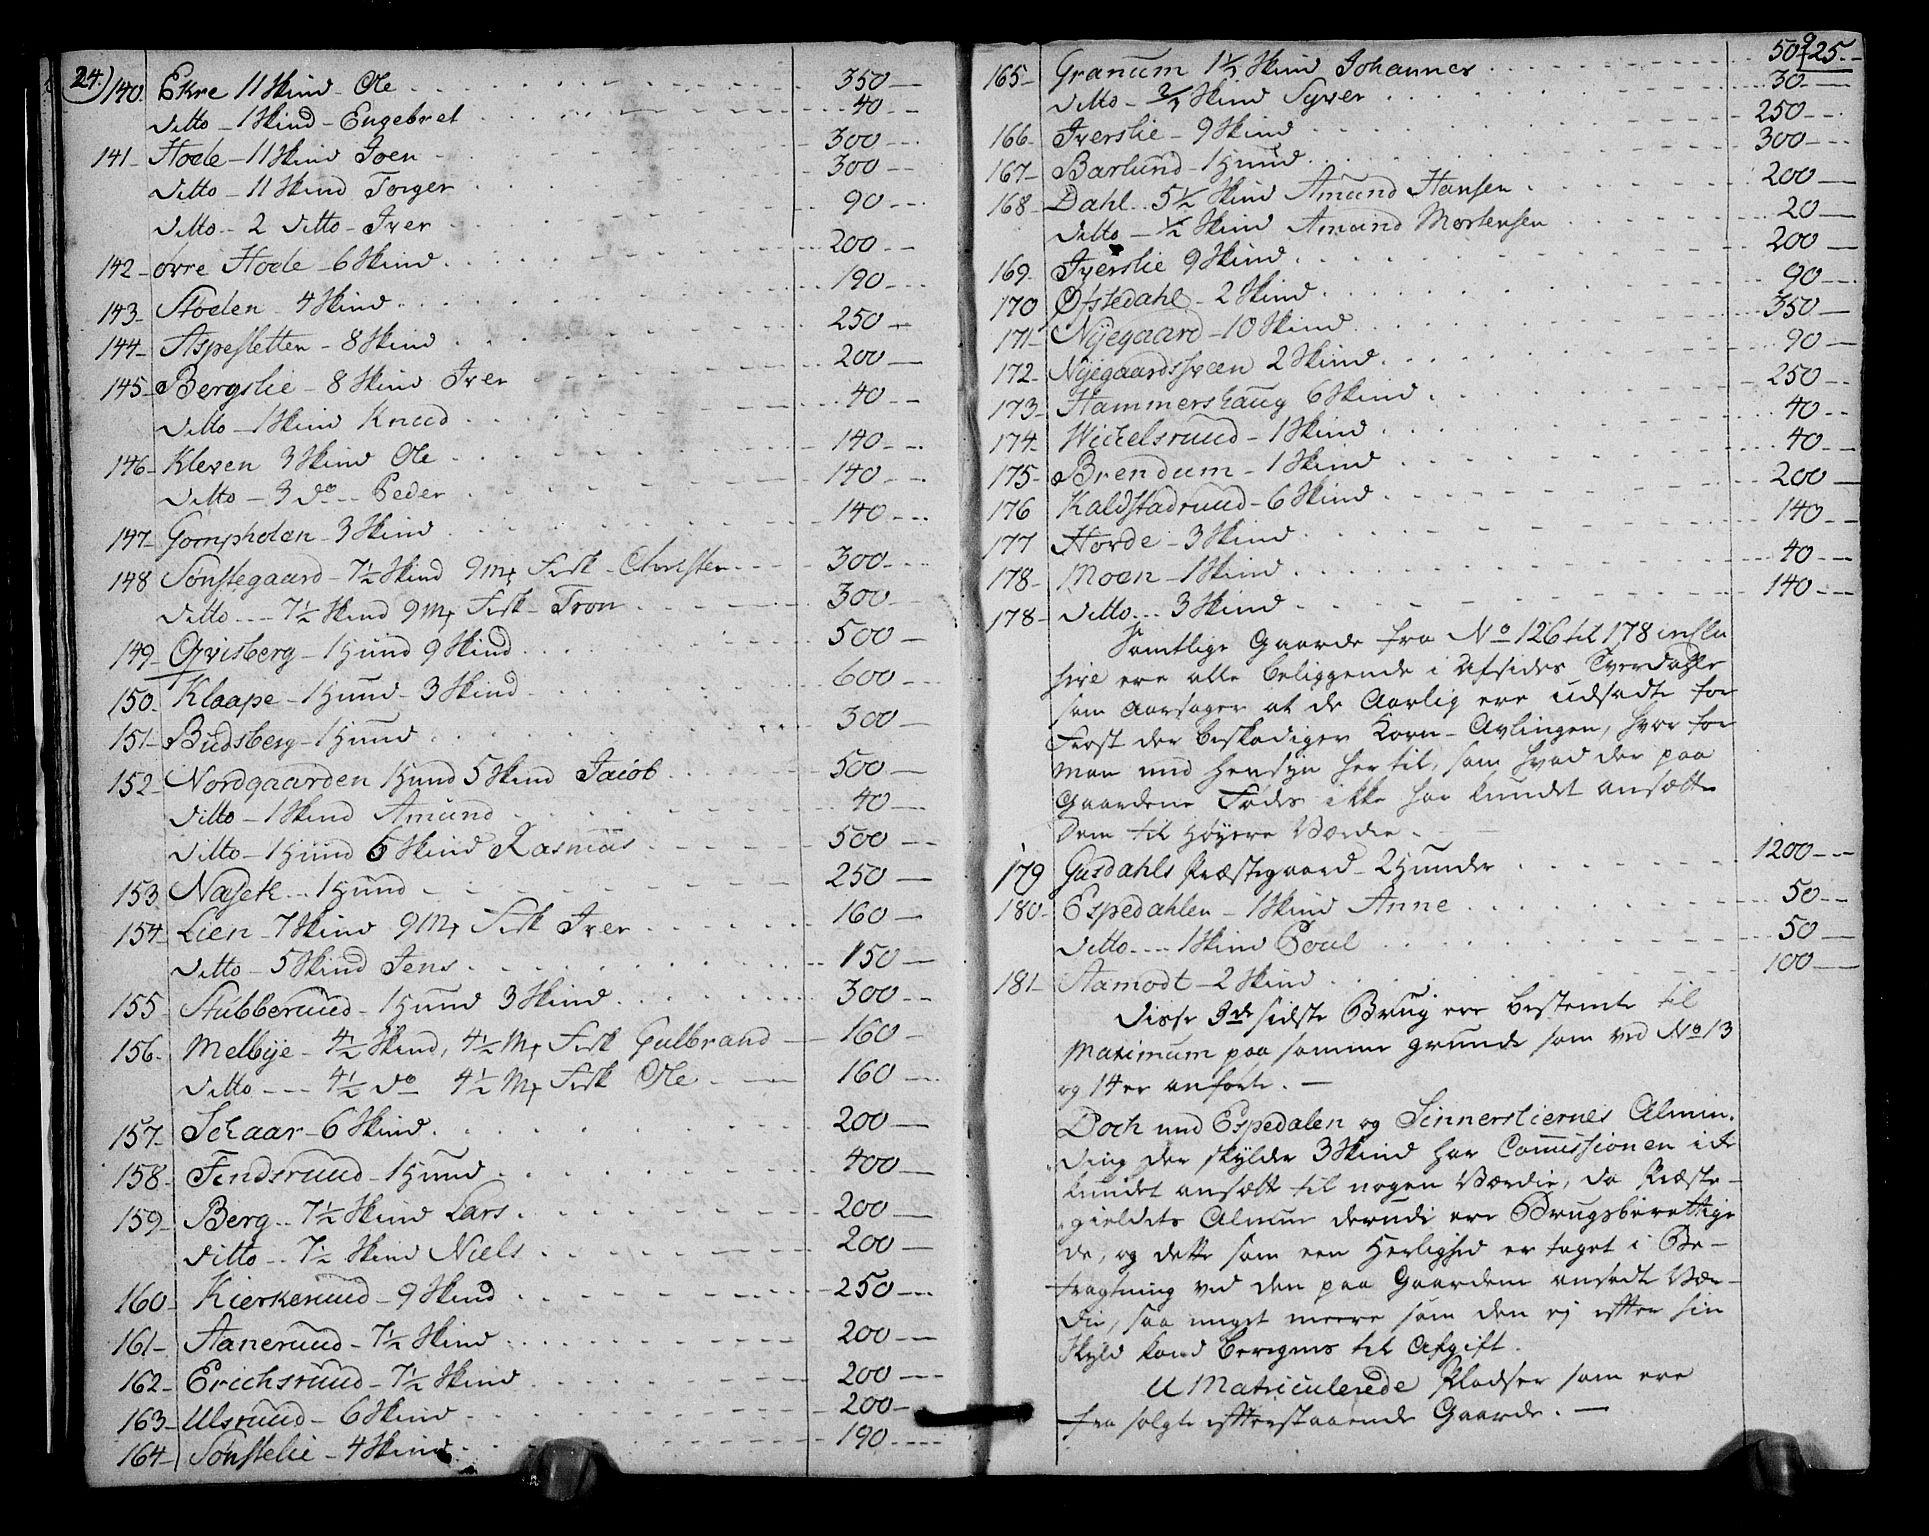 24.) 140. Ekre 11 Skind - Ole 350
Ditto - 1 Skind - Engebret 40
141 - Hode - 11 Skind Joen 300
Ditto - 11 Skind Torger 300
Ditto - 2 Ditto - Iver 90
142 - øvre Hode - 6 Skind 200
143 - Stoelen - 4 Skind 190
144 - Aspesletten - 8 Skind 250
145 - Bergslie - 8 Skind Iver 200
Ditto - 1 Skind Knud 40
146 - Kleven 3 Skind Ole 140
Ditto - 3 do - Peder 140
147 - Gompholen - 3 Skind 140
148 Sønstegaard - 7½ Skind 9 Mk Fisk - Christen 300
Ditto - 7½ Skind 9 Mk Fisk - Tron 300
149 - Qvisberg - 1 Hund 9 Skind 500
150 - Klaape - 1 Hund - 3 Skind 600
151 - Budsberg - 1 Hund 300
152 - Nordgaarden 1 Hund 5 Skind Jacob 500
Ditto - 1 Skind Amund 40
Ditto - 1 Hund 6 Skind Rasmus 500
153 Nasek - 1 Hund 250
154 - Lien - 7 Skind 9 Mk Fisk Iver 160
Ditto - 5 Skind Jens 150
155 - Stubberud - 1 Hund 3 Skind 300
156 - Melbye - 4½ Skind, 4½ Mk Fisk Gulbrand 160
Ditto - 4½ do 4½ Mk Fisk Ole 160
157 - Schaar - 6 Skind 200
158 - Findsruud - 1 Hund 400
159 - Berg - 7½ Skind Lars 200
Ditto - 7½ Skind Niels 200
160 - Kierkeruud - 9 Skind 250
161 - Aaneruud - 7½ Skind 200
162 - Erichsruud - 7½ Skind 200
163 - Ulsruud - 6 Skind 200
164 - Sønstelie - 4 Skind 190
25.
165 - Granum 1½ Skind Johannes 50
Ditto - Skind Syver 30
166 - Iverslie - 9 Skind 250
167 - Barlund - 1 Hund 300
168 - Dahl - 5½ Skind Amund Hansen 200
Ditto - ½ Skind Amund Mortensen 20
169 - Iverslie 9 Skind 200
170 Ofstedahl - 2 Skind 90
171 - Nyegaard - 10 Skind 350
172 - Nyegaardssveen 2 Skind 90
173 - Hammershaug 6 Skind 250
174 - Wichelsruud - 1 Skind 40
175 - Brendum - 1 Skind 40
176 Kaldstadruud - 6 Skind 200
177 Horde - 3 Skind 140
178 - Moen - 1 Skind 40
178 - Ditto - 3 Skind 140
Samtlige Gaarde fra No 126 til 178 inclu
sive ere alle beliggende i Afsides Tverdahle
som aarsager at de Aarlig ere udsadte for
Frost der beskadiger Korn-Avlingen, hvor for
man med Hensyn her til, som hvad der paa
Gaardene Fødes ikke har kundet ansætte
Dem til høyere Værdie.
179 Gusdahls Præstegaard - 2 Hunder 1200
180 - Espedahlen - 1 Skind Anne 50
Ditto - 1 Skind Poul 50
181 - Aamodt - 2 Skind 100
Disse 3de sidste Brug ere bestemte til
Maximum paa samme grunde som ved No 13
og 14 er anførte.
Doch med Espedalen og Sinnersliernes Almin-
ding der skylder 3 Skind har Comissionen i
kundet ansætt til nogen Værdie, da Præste-
gieldets Almue derudi ere Brugsberettige
de, og dette som een Herlighed er taget i Be-
tragtning ved den paa Gaardene ansadte Vær-
die, saa meget meere som den ej efter sin
Skyld kand beregnes til Afgift.
UMatriculerede Pladser som ere
fra solgte efterstaaende Gaarde.